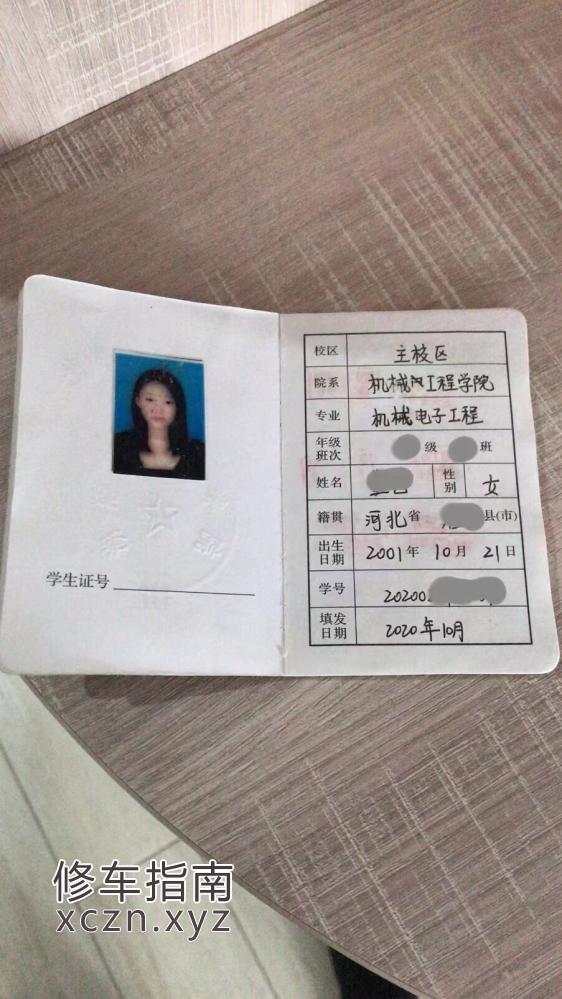 校区 主校区
院系 机械工程学院
专业 机械电子工程
年级班次 级 班
姓名 性别 女
籍贯 河北省 县(市)
出生日期 2001年10月21日
学号 20200
填发日期 2020年10月
学生证号
修车指南
xczn.xyz